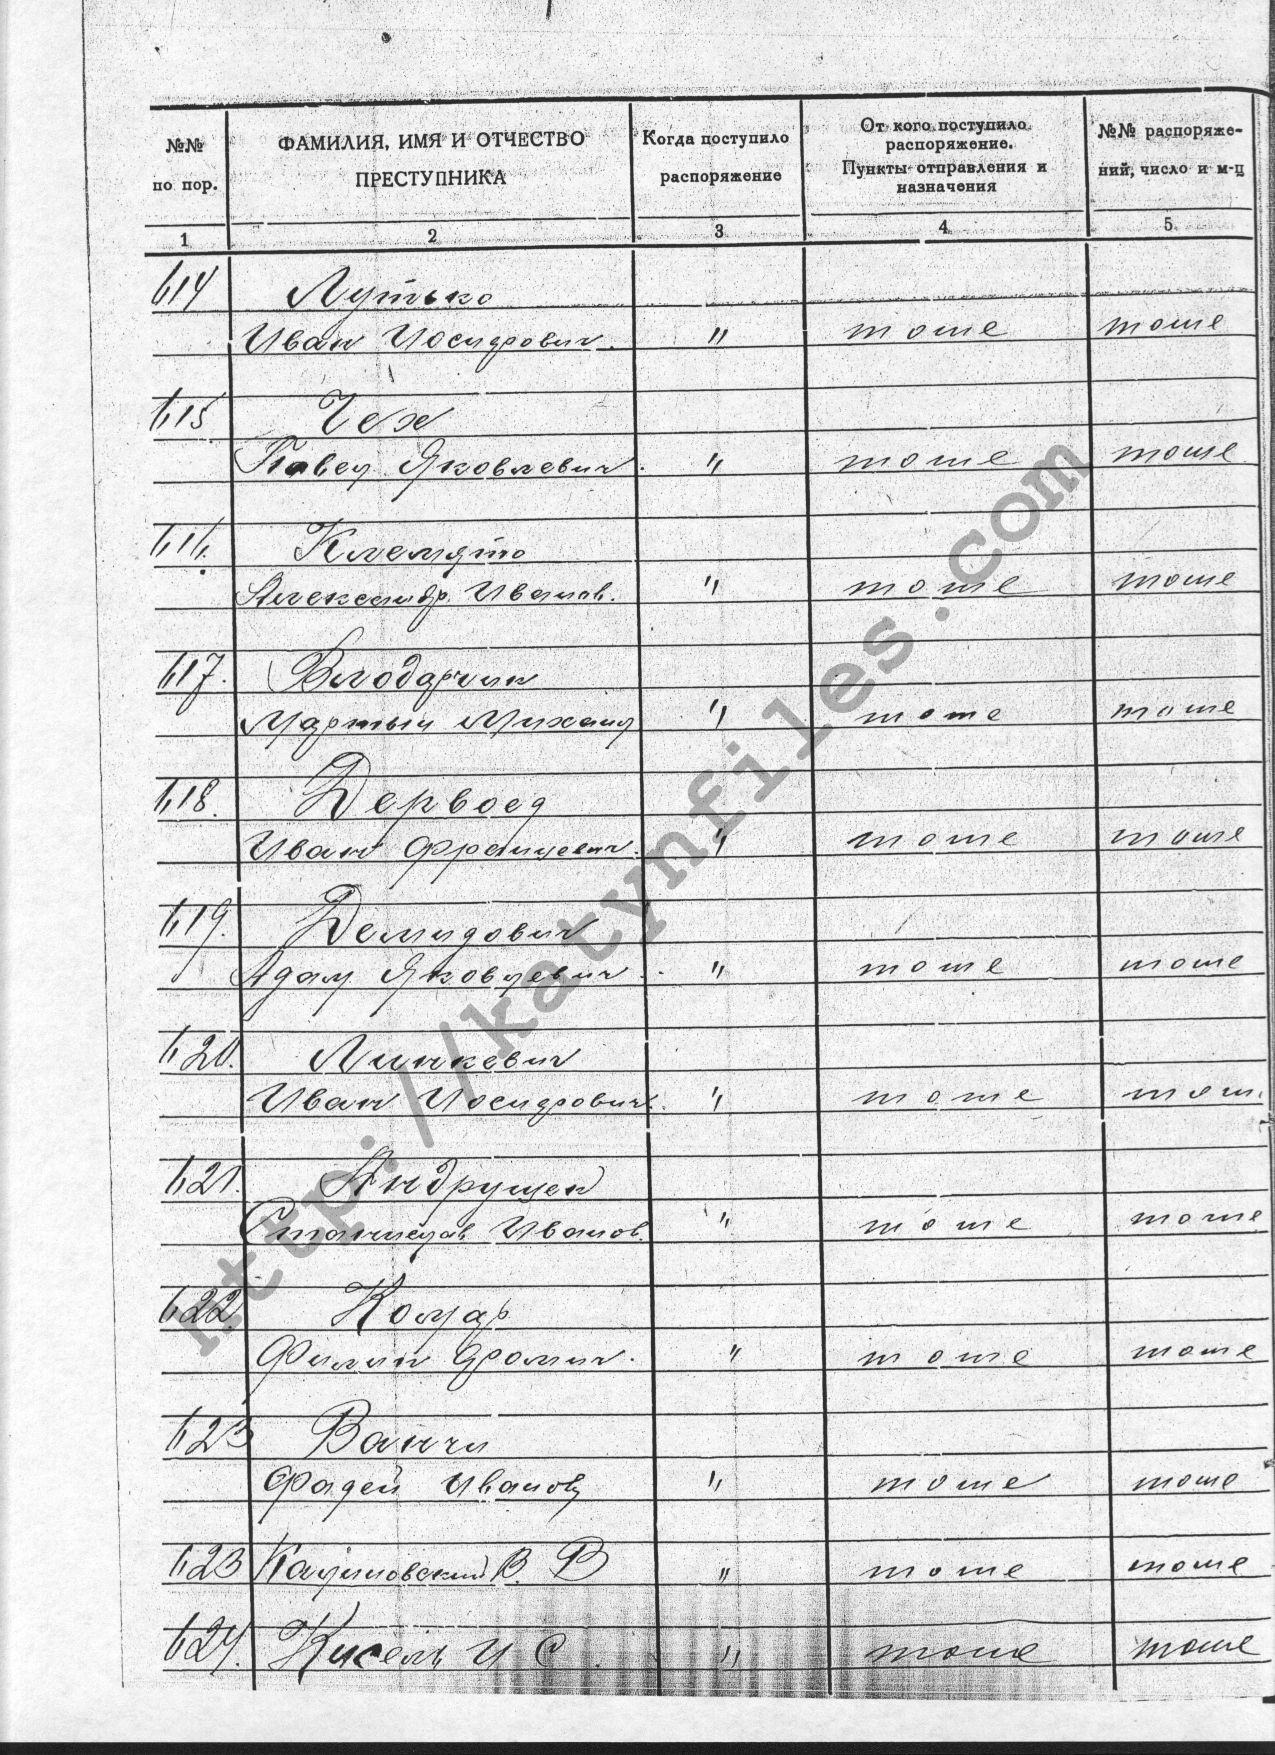 №№ по пор.
ФАМИЛИЯ, ИМЯ И ОТЧЕСТВО
ПРЕСТУПНИКА
Когда поступило
распоряжение
От кого поступило
распоряжение.
Пункты отправления и
назначения
№№ распоряже-
ний, число и м-ц
1 2 3 4 5
614 Лутько
Иван Иосифович. " тоже тоже
615 Чех
Павел Яковлевич. " тоже тоже
616. Клемято
Александр. Иванов. " тоже тоже
617. Влодарчик
Мартын Михаил " тоже тоже
618. Дервоед
Иван Францевич. " тоже тоже
619. Демидович
Адам Яковлевич " тоже тоже
620. Линкевич
Иван Иосифович. " тоже тож
621. Андрущек
Станислав Иванов. " тоже тоже
622. Комар
Филип Фомич. " тоже тоже
623 Ванчи
Фадей Иванов " тоже тоже
623 Калиновский В. В " тоже тоже
624. Кисель И С. " тоже тоже
http://katynfiles.com